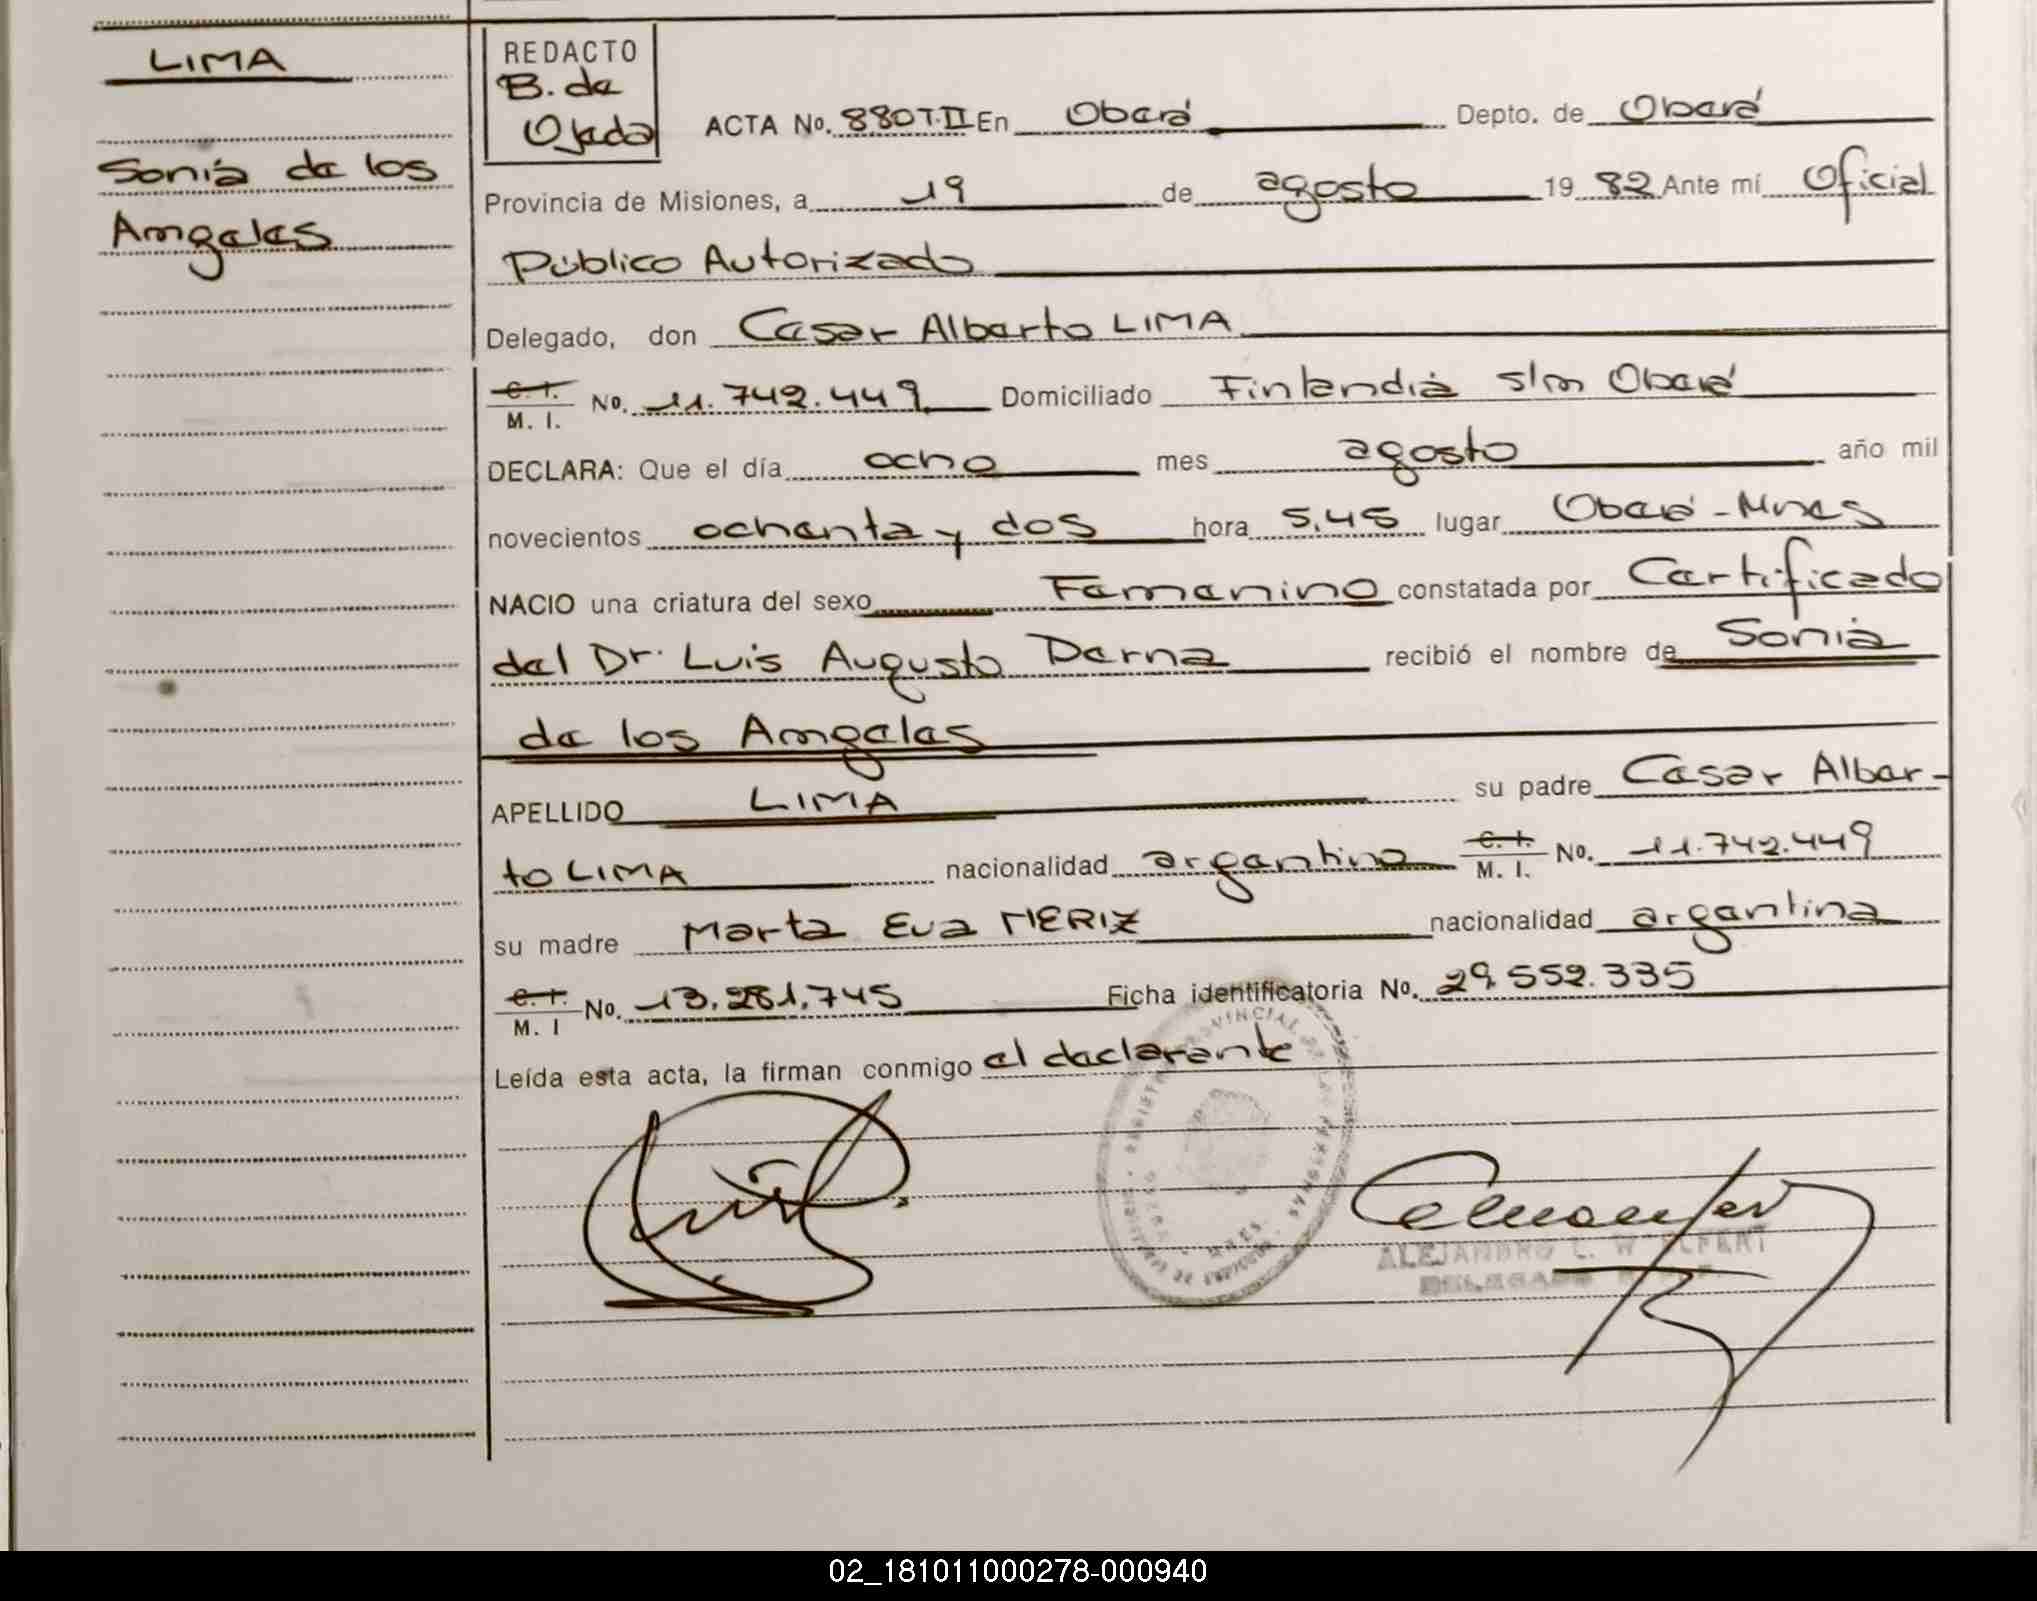 LIMA
Sonia de los
Angeles
REDACTO
B. de
Ojeda
ACTA No. 880 T.II En Oberá Depto. de Oberá
Provincia de Misiones, a 19 de agosto 19 82 Ante mí Oficial
Público Autorizado
Delegado, don Cesar Alberto LIMA
C. I.
M. I. No. 11.742.449 Domiciliado Finlandia s/n Oberá
DECLARA: Que el día ocho mes agosto año mil
novecientos ochenta y dos hora 5,45 lugar Oberá - Mnes
NACIO una criatura del sexo Femenino constatada por Certificado
del Dr. Luis Augusto Derna recibió el nombre de Sonia
de los Angeles
APELLIDO LIMA su padre Cesar Alber-
to LIMA nacionalidad argentina C. I. M. I. No. 11.742.449
su madre Marta Eva MERIZ nacionalidad argentina
C. I.
M. I No. 13.281.745 Ficha identificatoria No. 29.552.335
Leída esta acta, la firman conmigo el declarante
ALEJANDRO L.
DELEGADO
02_181011000278-000940